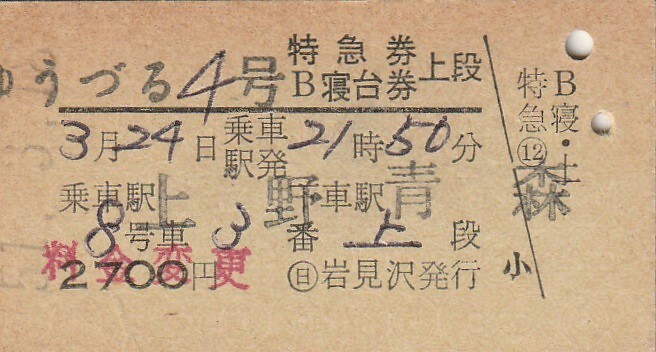 特急券
ゆうづる4号 B寝台券 上段
3月24日 乗車駅発 21時50分
乗車駅 上野 下車駅 青森
8号車 3番 上段
料金変更
2700円 ㊐岩見沢発行
特急 B寝・上
⑫
小